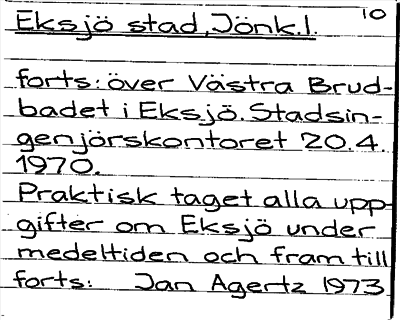 10
Eksjö stad, Jönk.l.
forts: över Västra Brud-
badet i Eksjö. Stadsin-
genjörskontoret 20.4.
1970.
Praktisk taget alla upp-
gifter om Eksjö under
medeltiden och fram till
forts: Jan Agertz 1973